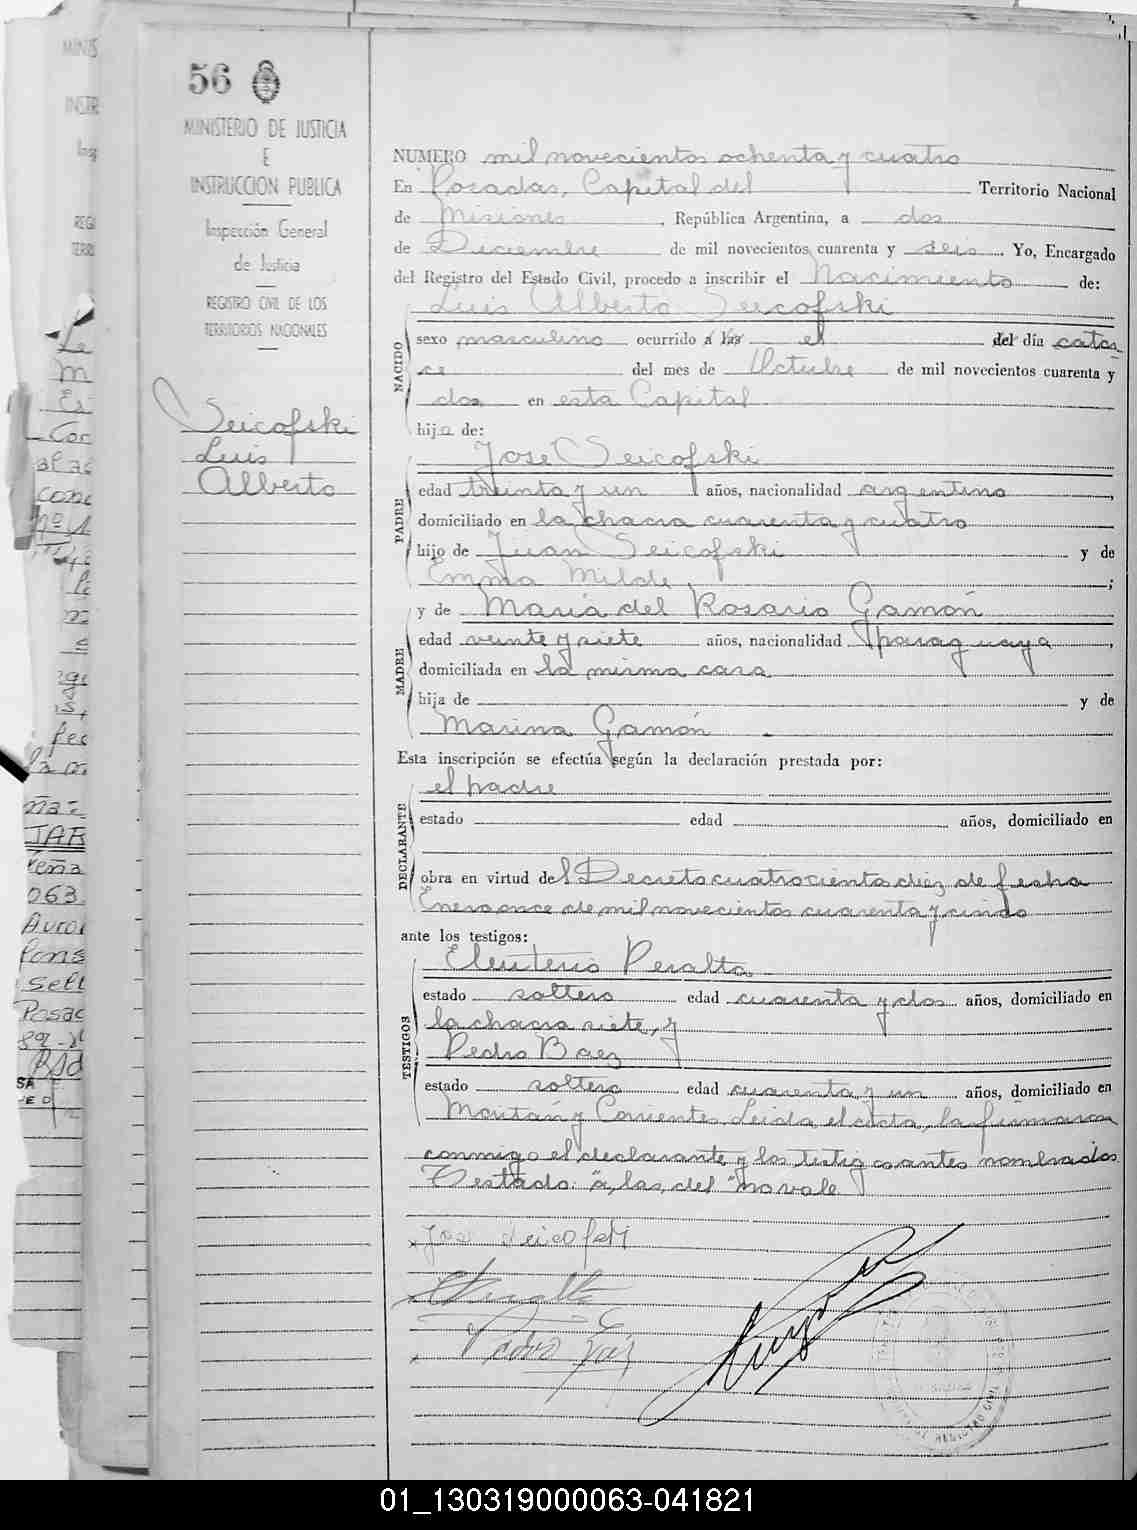 56
MINISTERIO DE JUSTICIA
E
INSTRUCCION PUBLICA
Inspección General
de Justicia
REGISTRO CIVIL DE LOS
TERRITORIOS NACIONALES
Seicofski
Luis
Alberto
NUMERO mil novecientos ochenta y cuatro
En Posadas, Capital del Territorio Nacional
de Misiones, República Argentina, a dos
de Diciembre de mil novecientos cuarenta y seis Yo, Encargado
del Registro del Estado Civil, procedo a inscribir el Nacimiento de:
Luis Alberto Seicofski
NACIDO
sexo masculino ocurrido á las el del día cator
ce del mes de Octubre de mil novecientos cuarenta y
dos en esta Capital
hijo de:
José Seicofski
PADRE
edad treinta y un años, nacionalidad argentino,
domiciliado en la chacra cuarenta y cuatro
hijo de Juan Seicofski y de
Emma Milde;
y de María del Rosario Gamón
MADRE
edad veinte y siete años, nacionalidad paraguaya,
domiciliada en la misma casa
hija de y de
Marina Gamón
Esta inscripción se efectúa según la declaración prestada por:
el padre
DECLARANTE
estado edad años, domiciliado en
obra en virtud del Decreto cuatrocientos diez de fecha
Enero once de mil novecientos cuarenta y cinco
ante los testigos:
Eleuterio Peralta
TESTIGOS
estado soltero edad cuarenta y dos años, domiciliado en
la chacra siete, y
Pedro Baez
estado soltero edad cuarenta y un años, domiciliado en
Moritán y Corrientes. Leida el acta, la firmaron
conmigo el declarante y los testigos antes nombrados
Testado: "á, las, del" no vale
José Seicofski
EPeralta
Pedro Baez
01_130319000063-041821